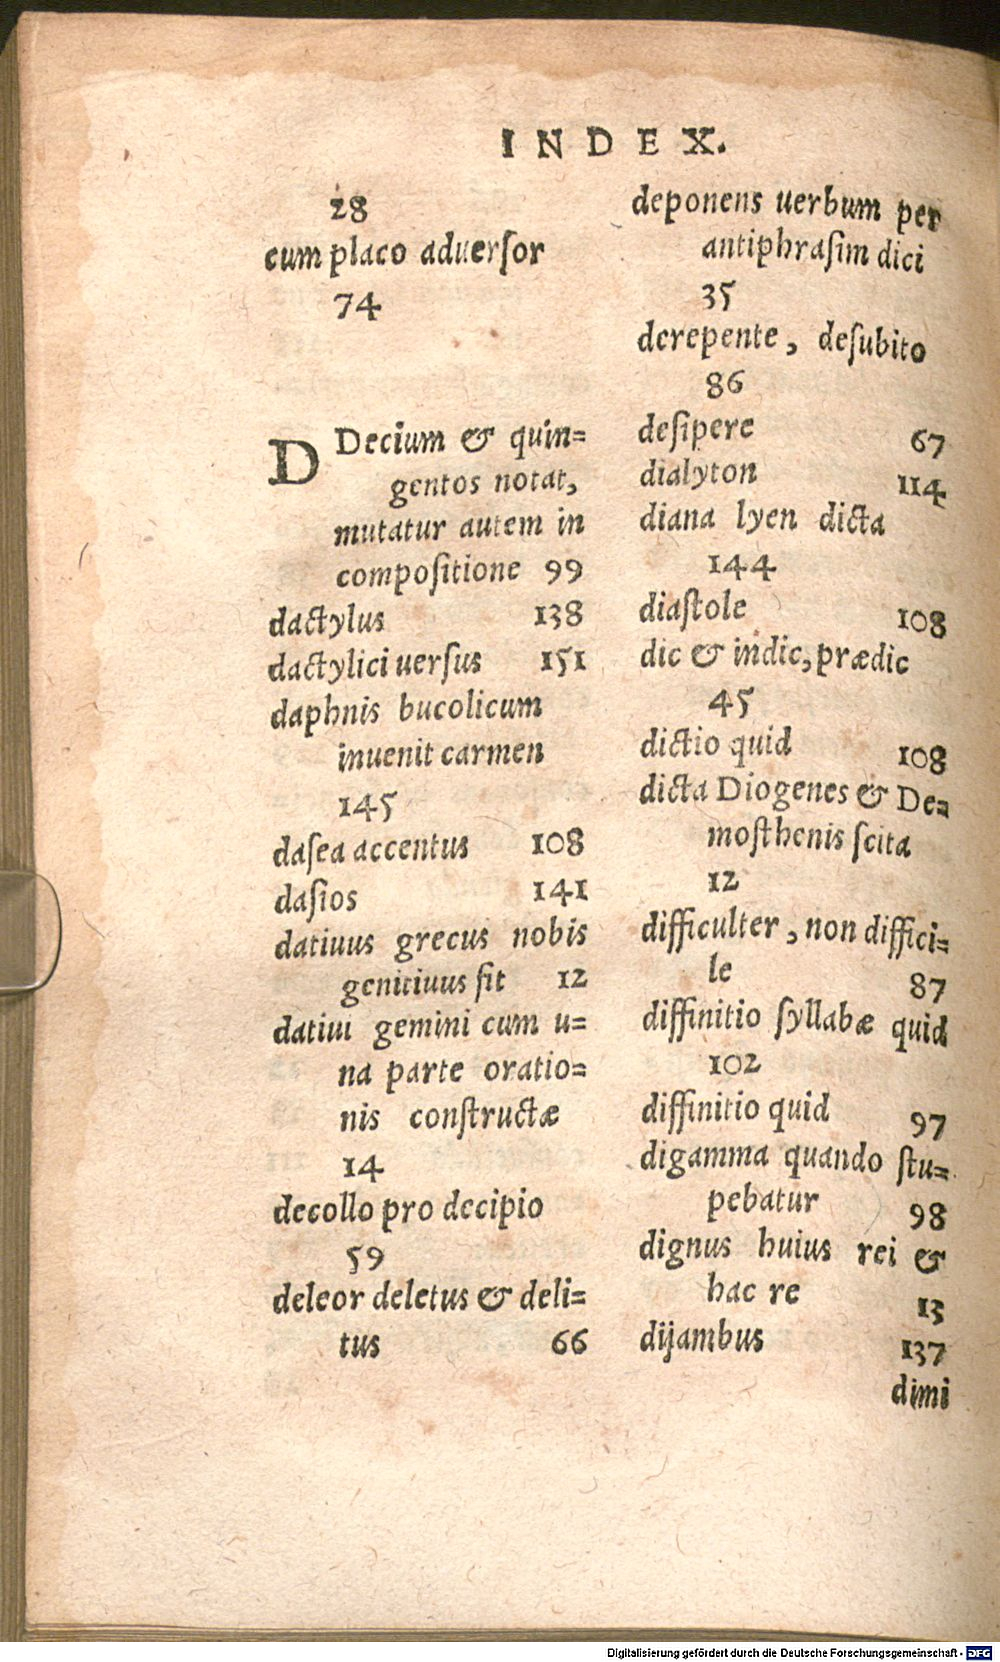 INDEX.
28
cum placo aduersor
74
D Decium & quin=
gentos notat,
mutatur autem in
compositione 99
dactylus 138
dactylici uersus 151
daphnis bucolicum
inuenit carmen
145
dasea accentus 108
dasios 141
datiuus grecus nobis
genitiuus fit 12
datiui gemini cum u=
na parte oratio=
nis constructæ
14
decollo pro decipio
59
deleor deletus & deli=
tus 66
deponens uerbum per
antiphrasim dici
35
derepente, desubito
86
desipere 67
dialyton 114
diana lyen dicta
144
diastole 108
dic & indic, prædic
45
dictio quid 108
dicta Diogenes & De=
mosthenis scita
12
difficulter, non diffici=
le 87
diffinitio syllabæ quid
102
diffinitio quid 97
digamma quando stu=
pebatur 98
dignus huius rei &
hac re 13
dijambus 137
dimi
Digitalisierung gefördert durch die Deutsche Forschungsgemeinschaft - DFG